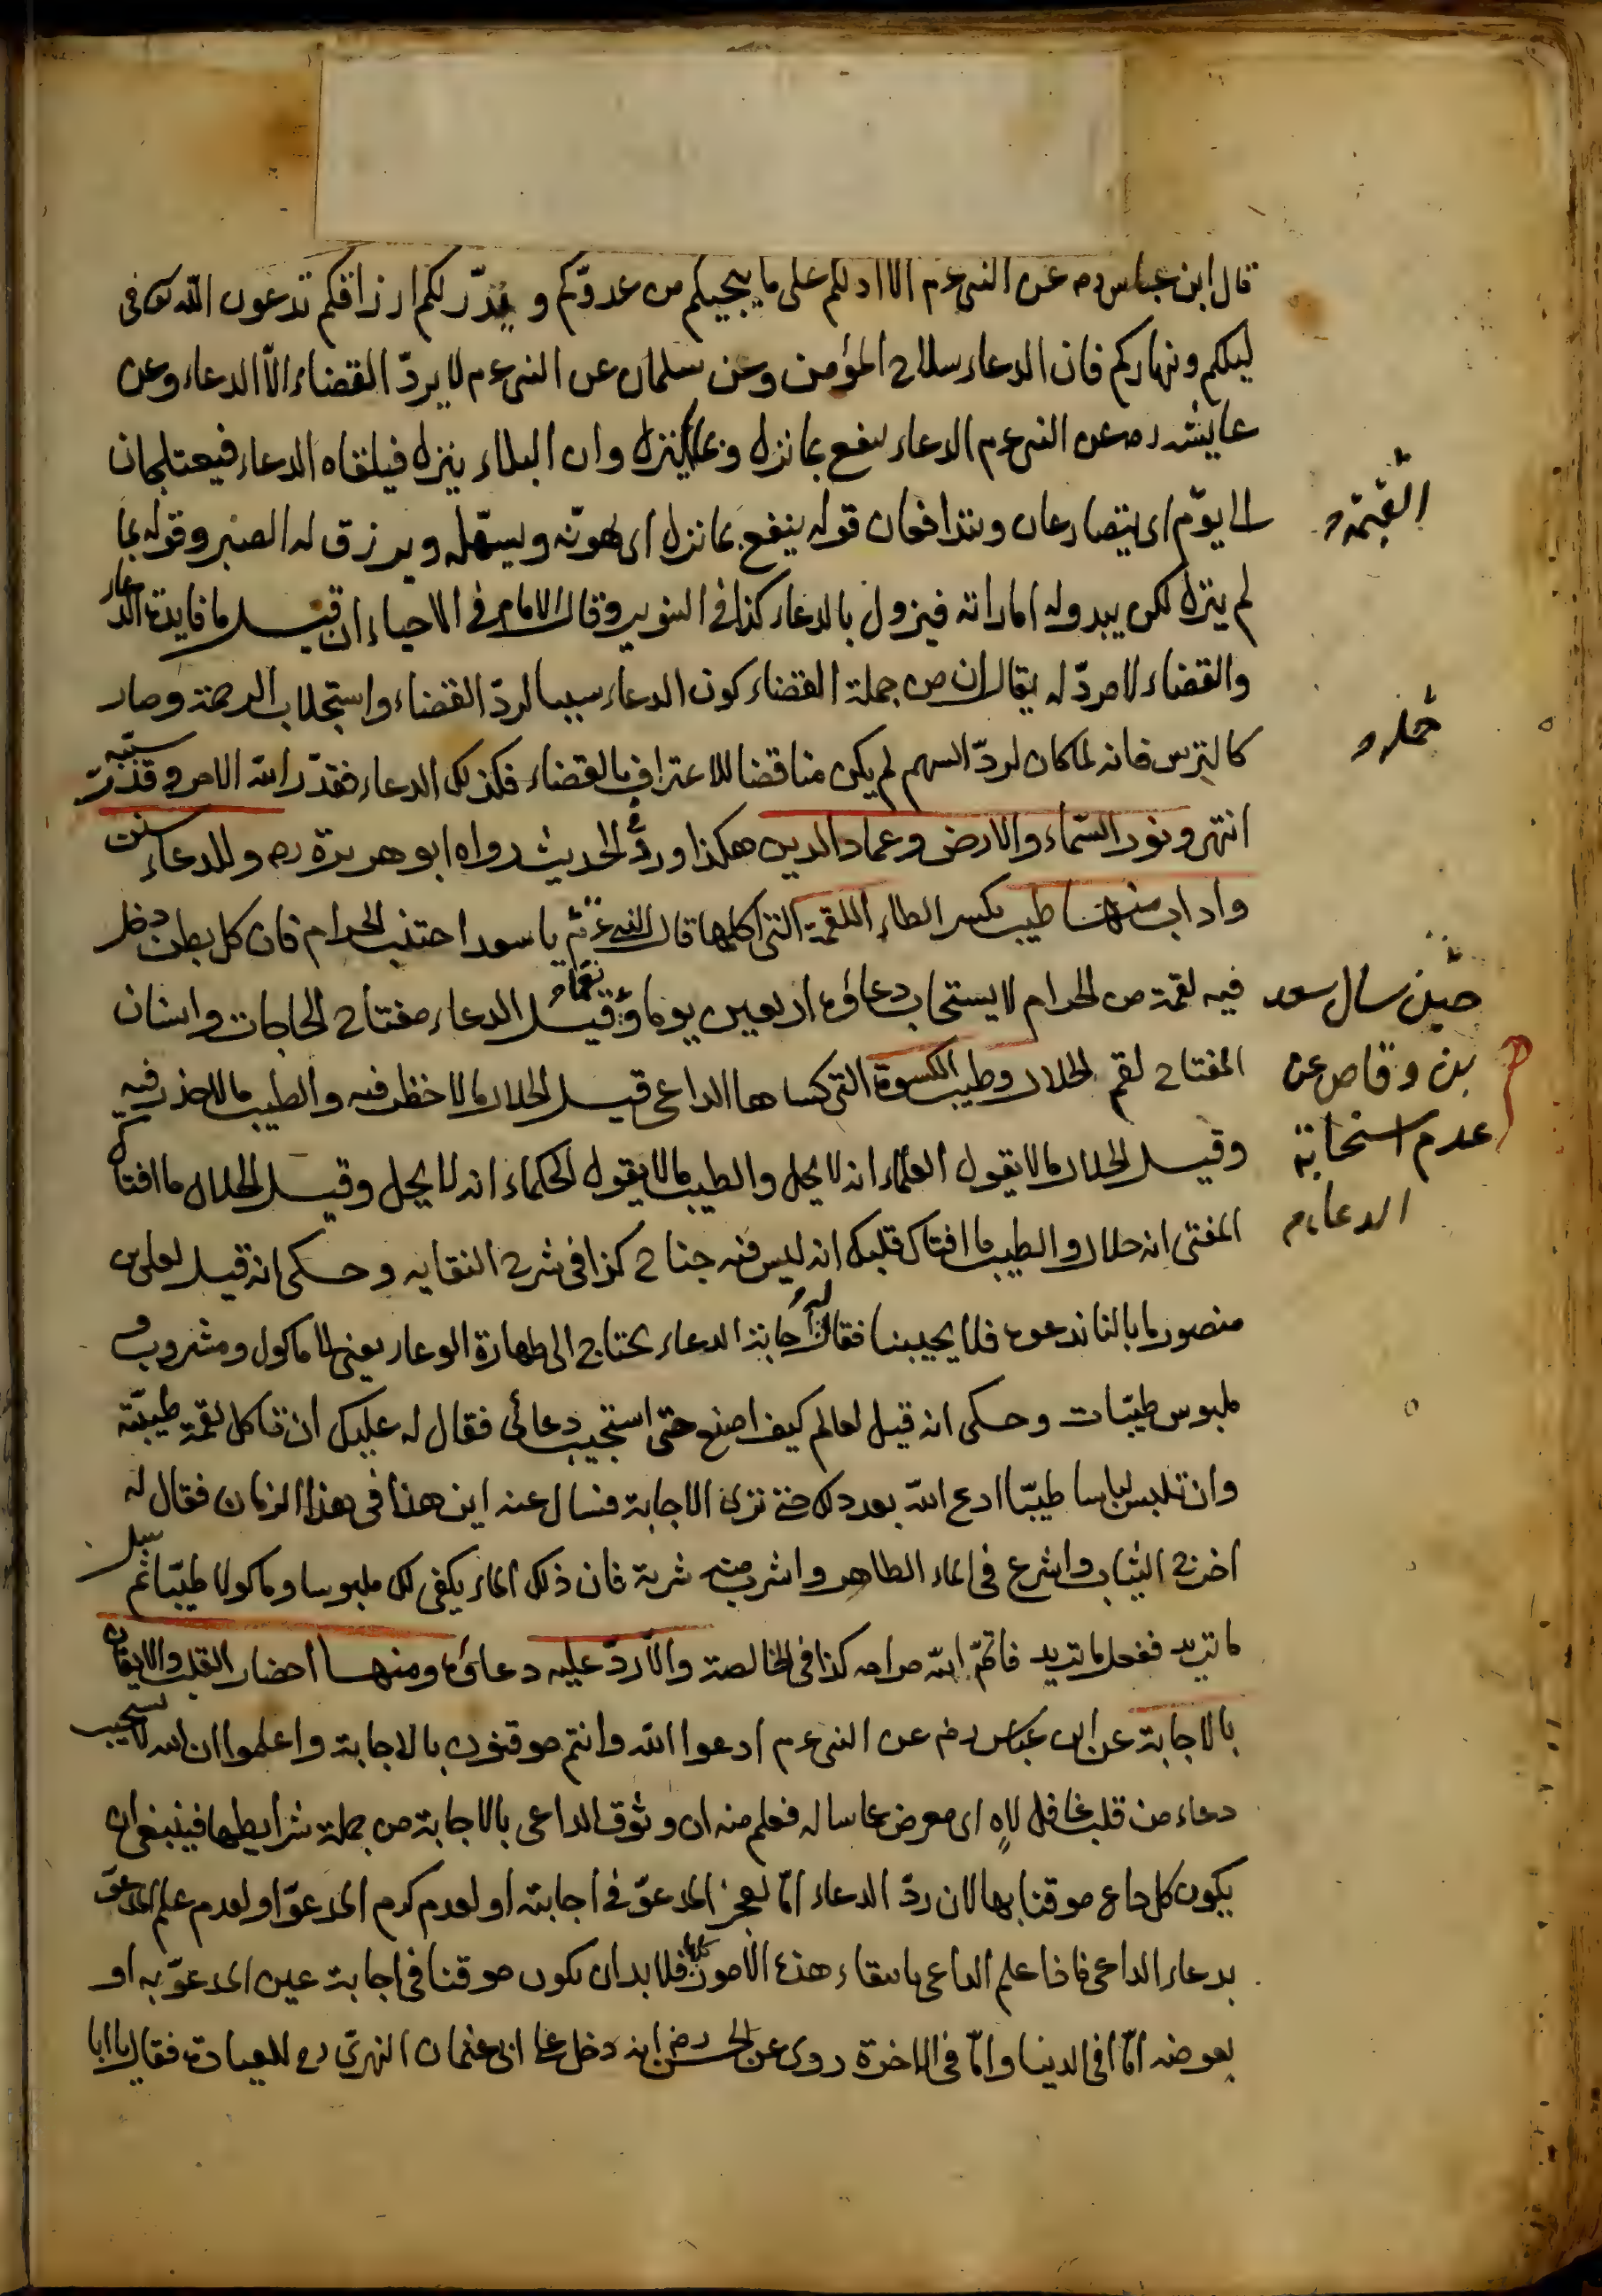 قال ابن عباس رض عن النبى عم الا ادلكم على ما ينجيكم من عدوّكم و يدرّ لكم ارزاقكم تدعون الله تع فى
ليلكم ونهاركم فان الدعاء سلاح المؤمن وعن سلمان عن النبى عم لا يردّ القضاء الّا الدعاء وعن
عايشه رض عن النبى عم الدعاء ينفع مما نزل ومما لم ينزل وان البلاء ينزل فيلقاه الدعاء فيعتلجان
الى يوم القيمة
اى يتصارعان ويتدافعان قوله ينفع مما نزل اى يهوّنه ويسهّله ويرزق له الصبر وقوله مما
لم ينزل لكن يبدو له اماراته فيزول بالدعاء كذا فى التنوير وقال الامام فى الاحياء ان قيل ما فايدة الدعاء
والقضاء لا مردّ له يقال ان من جملة القضاء كون الدعاء سببا لردّ القضاء واستجلاب الرحمة وصار
كالترس فانه لما كان لردّ السهم لم يكن مناقضا للاعتراف بالقضاء فكذلك الدعاء فقدّر الله الامر وقدّر سببه
انتهى ونور السّماء والارض وعماد الدين هكذا ورد فى الحديث رواه ابو هريرة رض وللدعاء سنن
واداب منها طيب بكسر الطاء اللقمة التى اكلها قال النبى عم يا سعد اجتنب الحرام فان كل بطن دخل
حين سال سعد
بن وقاص عن
عدم استجابة
الدعاء م
فيه لقمة من الحرام لا يستجاب دعاؤه اربعين يوما وقيل الدعاء مفتاح الحاجات واسنان
المفتاح لقم الحلال وطيب الكسوة التى كساها الداعى قيل الحلال ما لا خطر فيه والطيب ما لا حذر فيه
وقيل الحلال ما لا يقول العلماء انه لا يحل والطيب ما لا يقول الحكماء انه لا يحل وقيل الحلال ما افتاك
المفتى انه حلال والطيب ما افتاك قلبك انه ليس فيه جناح كذا فى شرح النقايه وحكى انه قيل لعلى بن
منصور ما بالنا ندعوه فلا يجيبنا فقال اجابة الدعاء يحتاج الى طهارة الوعاء يعنى الى ماكول ومشروب و
ملبوس طيّبات وحكى انه قيل لعالم كيف اصنع حتى استجيب دعائى فقال له عليك ان تاكل لقمة طيبّة
وان تلبس لباسا طيّبا ادع الله بعد ذلك حتى ترى الاجابة فسال عنه اين هذا فى هذا الزمان فقال له
اخرج الثياب واشرع فى الماء الطاهر واشرب منه شربة فان ذلك الماء يكفى لك ملبوسا وماكولا طيّبا ثم سل
ما تريد ففعل ما تريد فاتمّ الله مرامه كذا فى الخالصة والّا ردّ عليه دعاؤه ومنها احضار القلب والايقان
بالاجابة عن ابن عباس رض عن النبى عم ادعوا الله وانتم موقنون بالاجابة واعلموا ان الله لا يستجيب
دعاء من قلب غافل لاهٍ اى معرض عما ساله فعلم منه ان وثوق الداعى بالاجابة من جملة شرايطها فينبغى ان
يكون كل داع موقنا بها لان ردّ الدعاء امّا لعجز المدعوّ فى اجابته او لعدم كرم المدعوّ او لعدم علم المدعوّ
بدعاء الداعى فاذا علم الداعى بانتفاء هذه الامور كلها فلا بد ان يكون موقنا فى اجابة عين المدعوّ به او
بعوضه امّا فى الدنيا وامّا فى الاخرة روى عن الحسن رض انه دخل على ابى عثمان النهدى رح للعيادة فقال يا ابا